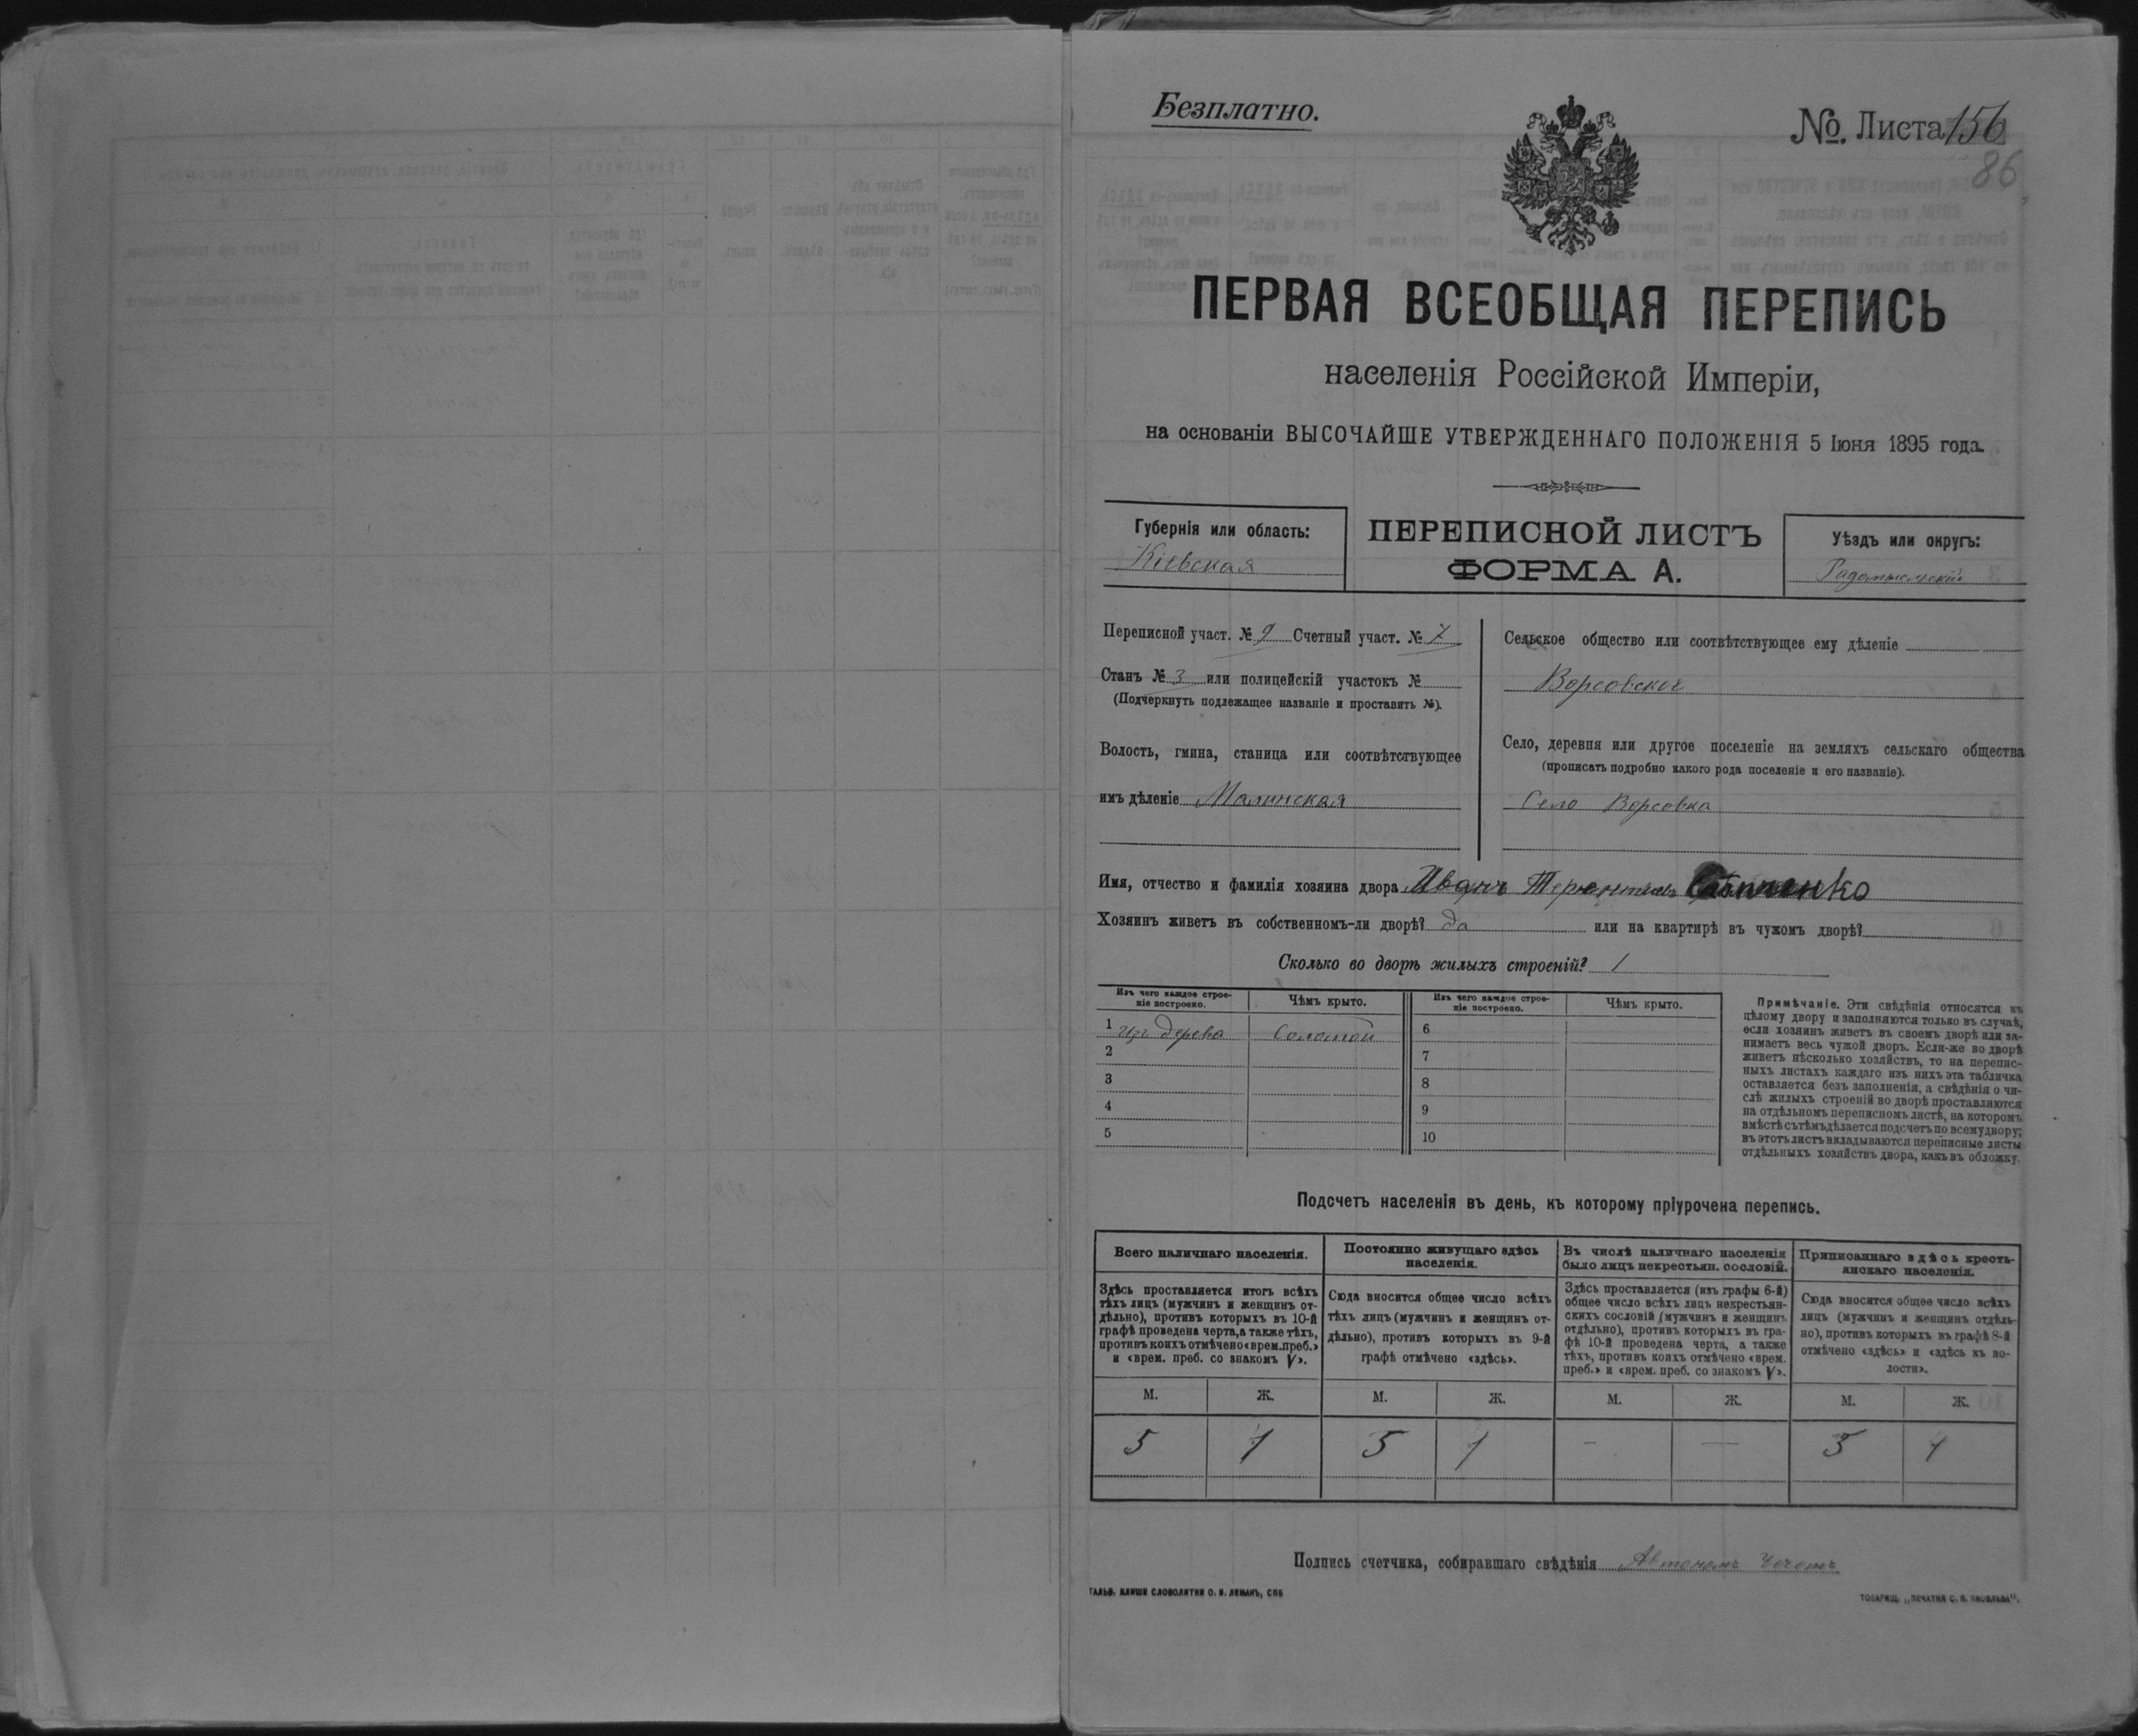 Безплатно.
№. Листа 156
86
ПЕРВАЯ ВСЕОБЩАЯ ПЕРЕПИСЬ
населенія Россійской Имперіи,
на основаніи ВЫСОЧАЙШЕ УТВЕРЖДЕННАГО ПОЛОЖЕНІЯ 5 Іюня 1895 года.
Губернія или область:
Кіевская
ПЕРЕПИСНОЙ ЛИСТЪ
ФОРМА А.
Уѣздъ или округъ:
Радомысльскій
Переписной участ. № 9 Счетный участ. № 7
Станъ № 3 или полицейскій участокъ №
(Подчеркнуть подлежащее названіе и проставить №).
Волость, гмина, станица или соотвѣтствующее
имъ дѣленіе Малинская
Сельское общество или соотвѣтствующее ему дѣленіе
Ворсовское
Село, деревня или другое поселеніе на земляхъ сельскаго общества
(прописать подробно какого рода поселеніе и его названіе).
Село Ворсовка
Имя, отчество и фамилія хозяина двора Иванъ Терентьевъ
Хозяинъ живетъ въ собственномъ-ли дворѣ? да или на квартирѣ въ чужомъ дворѣ?
Сколько во дворѣ жилыхъ строеній? 1
Изъ чего каждое строе-
ніе построено.
Чѣмъ крыто.
Изъ чего каждое строе-
ніе построено.
Чѣмъ крыто.
1 изъ дерева Соломой 6
2 7
3 8
4 9
5 10
Примѣчаніе. Эти свѣдѣнія относятся къ
цѣлому двору и заполняются только въ случаѣ,
если хозяинъ живетъ въ своемъ дворѣ или за-
нимаетъ весь чужой дворъ. Если-же во дворѣ
живетъ нѣсколько хозяйствъ, то на перепис-
ныхъ листахъ каждаго изъ нихъ эта табличка
оставляется безъ заполненія, а свѣдѣнія о чи-
слѣ жилыхъ строеній во дворѣ проставляются
на отдѣльномъ переписномъ листѣ, на которомъ
вмѣстѣ съ тѣмъ дѣлается подсчетъ по всему двору;
въ этотъ листъ вкладываются переписные листы
отдѣльныхъ хозяйствъ двора, какъ въ обложку.
Подсчетъ населенія въ день, къ которому пріурочена перепись.
Всего наличнаго населенія.
Здѣсь проставляется итогъ всѣхъ
тѣхъ лицъ (мужчинъ и женщинъ от-
дѣльно), противъ которыхъ въ 10-й
графѣ проведена черта, а также тѣхъ,
противъ коихъ отмѣчено «врем. преб.»
и «врем. преб. со знакомъ V».
Постоянно живущаго здѣсь
населенія.
Сюда вносится общее число всѣхъ
тѣхъ лицъ (мужчинъ и женщинъ от-
дѣльно), противъ которыхъ въ 9-й
графѣ отмѣчено «здѣсь».
Въ числѣ наличнаго населенія
было лицъ некрестьян. сословій.
Здѣсь проставляется (изъ графы 6-й)
общее число всѣхъ лицъ некрестьян-
скихъ сословій (мужчинъ и женщинъ
отдѣльно), противъ которыхъ въ гра-
фѣ 10-й проведена черта, а также
тѣхъ, противъ коихъ отмѣчено «врем.
преб.» и «врем. преб. со знакомъ V».
Приписаннаго здѣсь кресть-
янскаго населенія.
Сюда вносится общее число всѣхъ
лицъ (мужчинъ и женщинъ отдѣль-
но), противъ которыхъ въ графѣ 8-й
отмѣчено «здѣсь» и «здѣсь къ во-
лости».
М. Ж. М. Ж. М. Ж. М. Ж.
5 1 5 1 — — 5 1
Подпись счетчика, собиравшаго свѣдѣнія Автономъ
ГАЛЬВ. КЛИШЕ СЛОВОЛИТНИ О. И. ЛЕМАНЪ, СПБ
ТОВАРИЩ. „ПЕЧАТНЯ С. П. ЯКОВЛЕВА“.